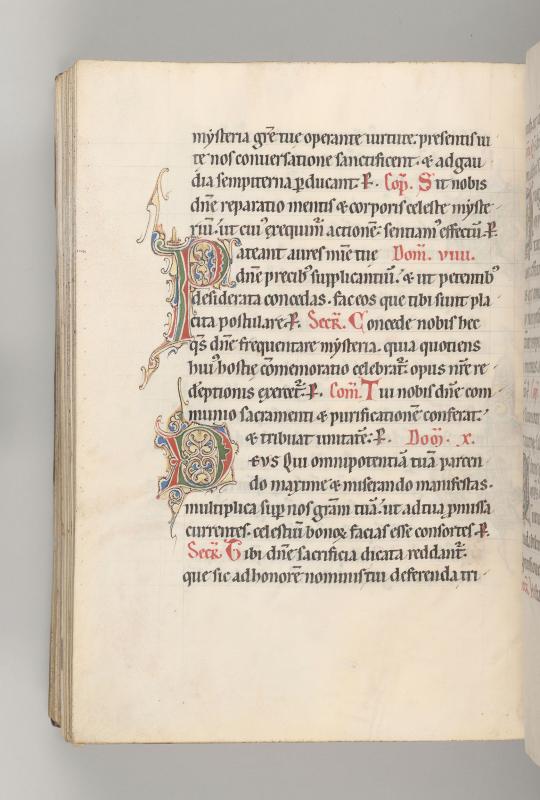 mysteria grē tue operante uirtute. presentis ui
te nos conuersatione sanctificent. & ad gau
dia sempiterna ꝑducant. P̱. Cop̄. Sit nobis
dn̄e reparatio mentis & corporis celeste myste
riū. ut cui' exequim̄ actionē. sentiam' effectū. P̱.
Pateant aures mīe tue Dom̄. viiii.
dn̄e precib' supplicantiū. & ut petentib'
desiderata concedas. fac eos que tibi sunt pla
cita postulare. P̱. Secr̄. Concede nobis hec
q̄s dn̄e frequentare mysteria. quia quotiens
hui' hostie cōmemoratio celebrat᷑. opus nr̄e re
dēptionis exercet᷑. P̱. Com̄. Tui nobis dn̄e com
munio sacramenti & purificationē conferat.
& tribuat unitatē. P̱. Dom̄. x.
Deus Qui omnipotentiā tuā parcen
do maxime & miserando manifestas.
multiplica suꝑ nos grām tuā. ut ad tua ꝓmissa
currentes. celestiū bonoꝝ facias esse consortes. P̱.
Secr̄. Tibi dn̄e sacrificia dicata reddant᷑.
que sic ad honorē nominis tui deferenda tri